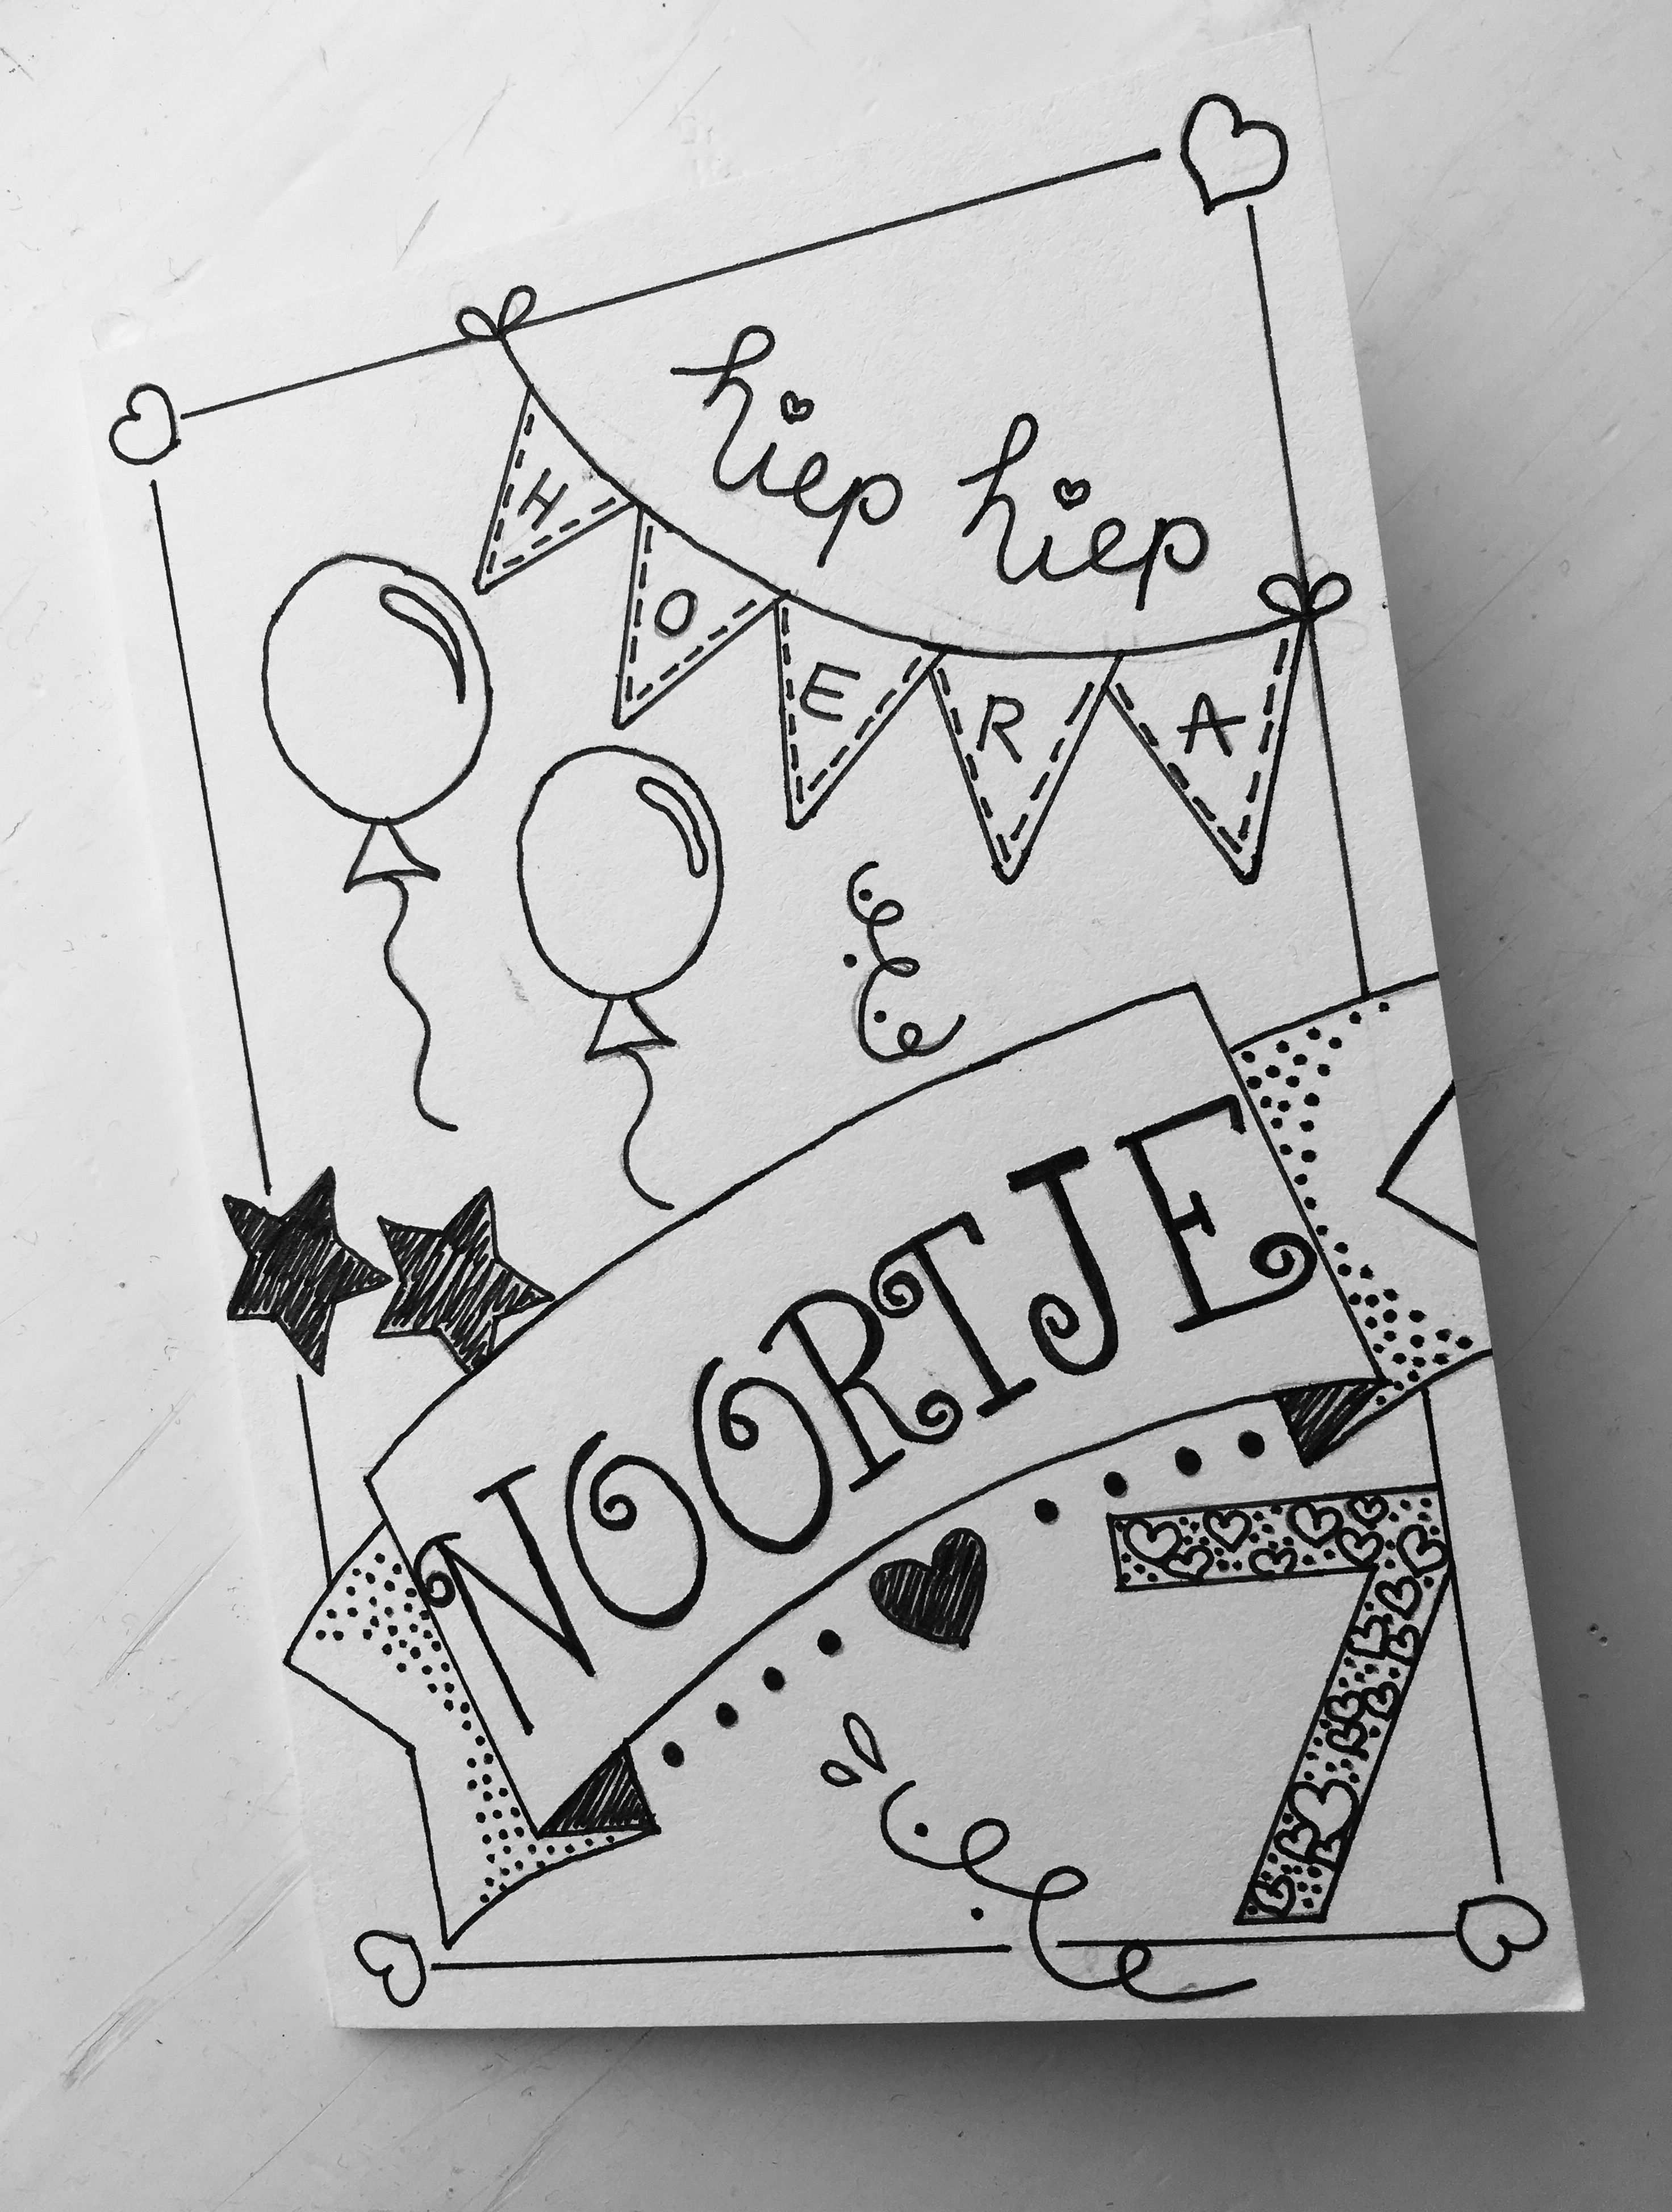 hiep hiep
HOERA
NOORTJE
7